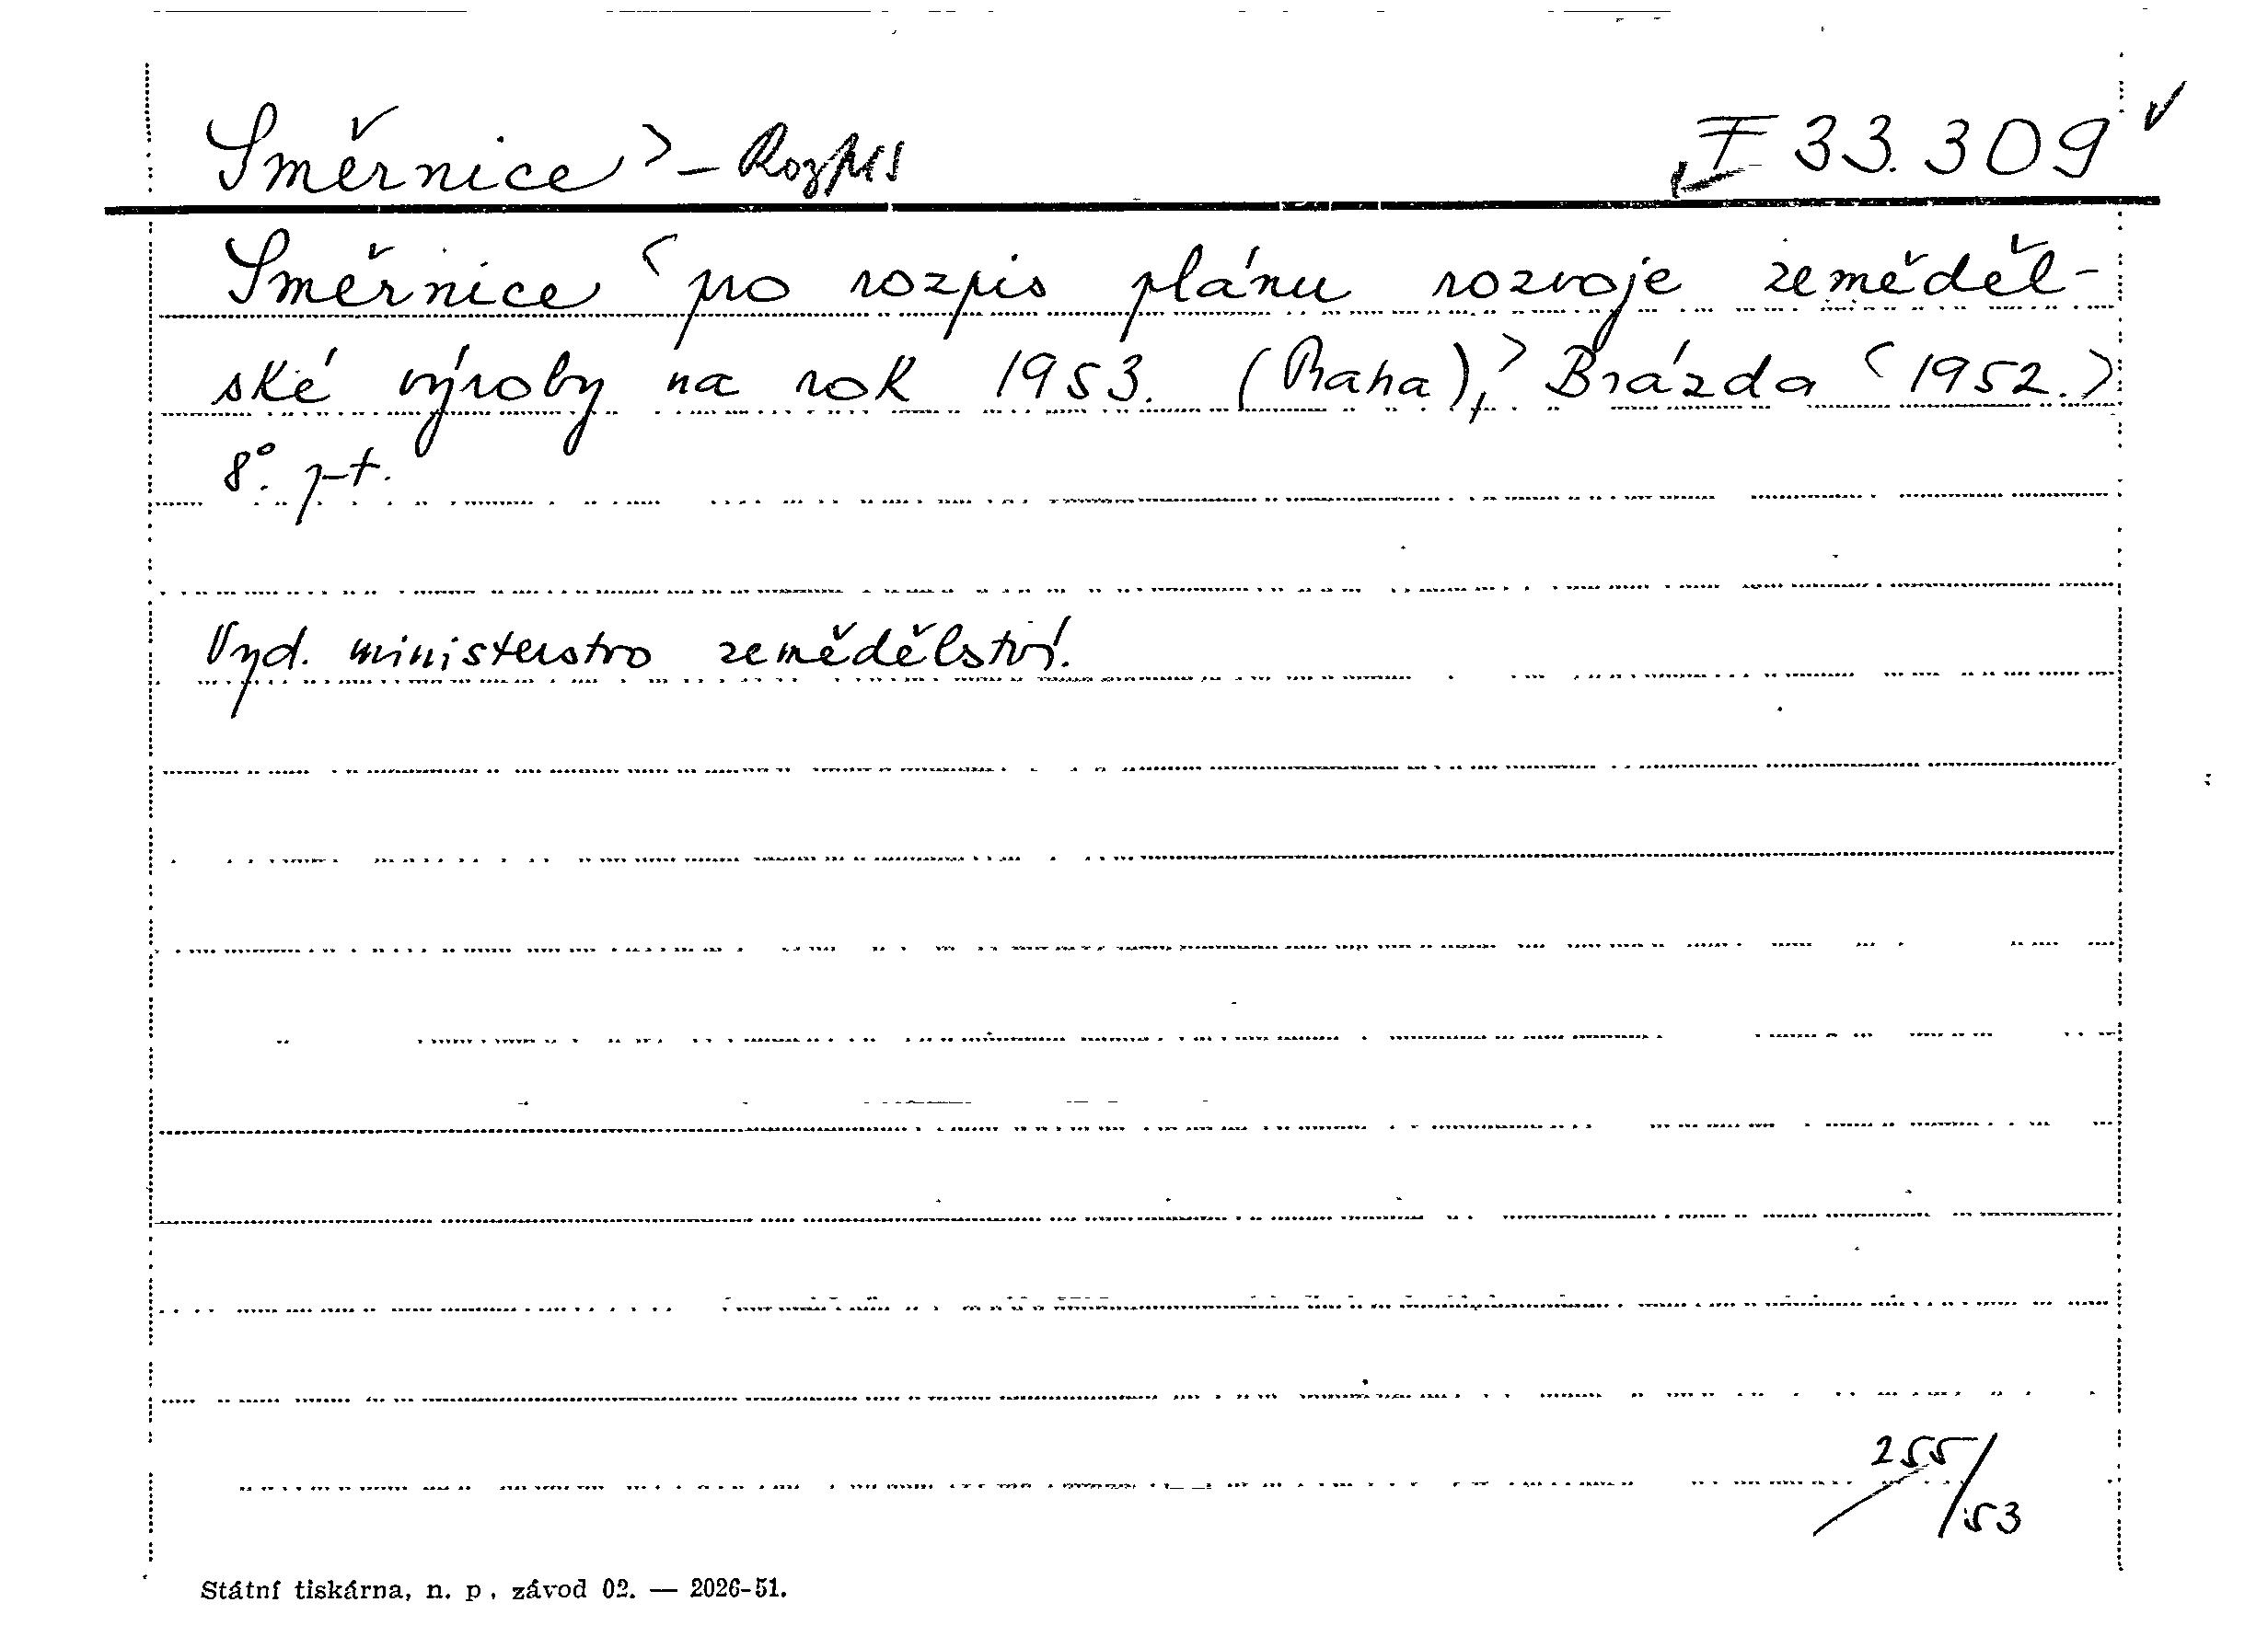 Směrnice > - Rozpis F 33.309 ✓
Směrnice < pro rozpis plánu rozvoje zeměděl-
ské výroby na rok 1953. (Praha), > Brázda < 1952. >
8°. p-t.
Vyd. ministerstvo zemědělství.
255/53
Státní tiskárna, n. p., závod 02. — 2026-51.